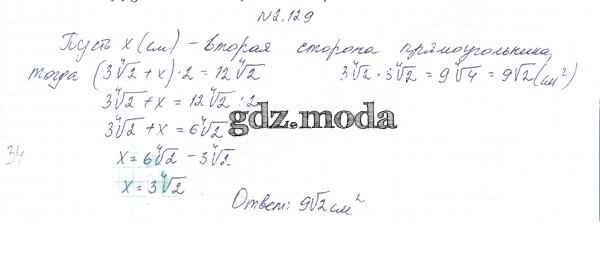 №2.129
Пусть x (см) – вторая сторона прямоугольника,
тогда (3∜2 + x) · 2 = 12∜2    3∜2 · 3∜2 = 9∜4 = 9√2 (см²)
3∜2 + x = 12∜2 : 2
3∜2 + x = 6∜2
gdz.moda
34
x = 6∜2 – 3∜2
x = 3∜2
Ответ: 9√2 см²